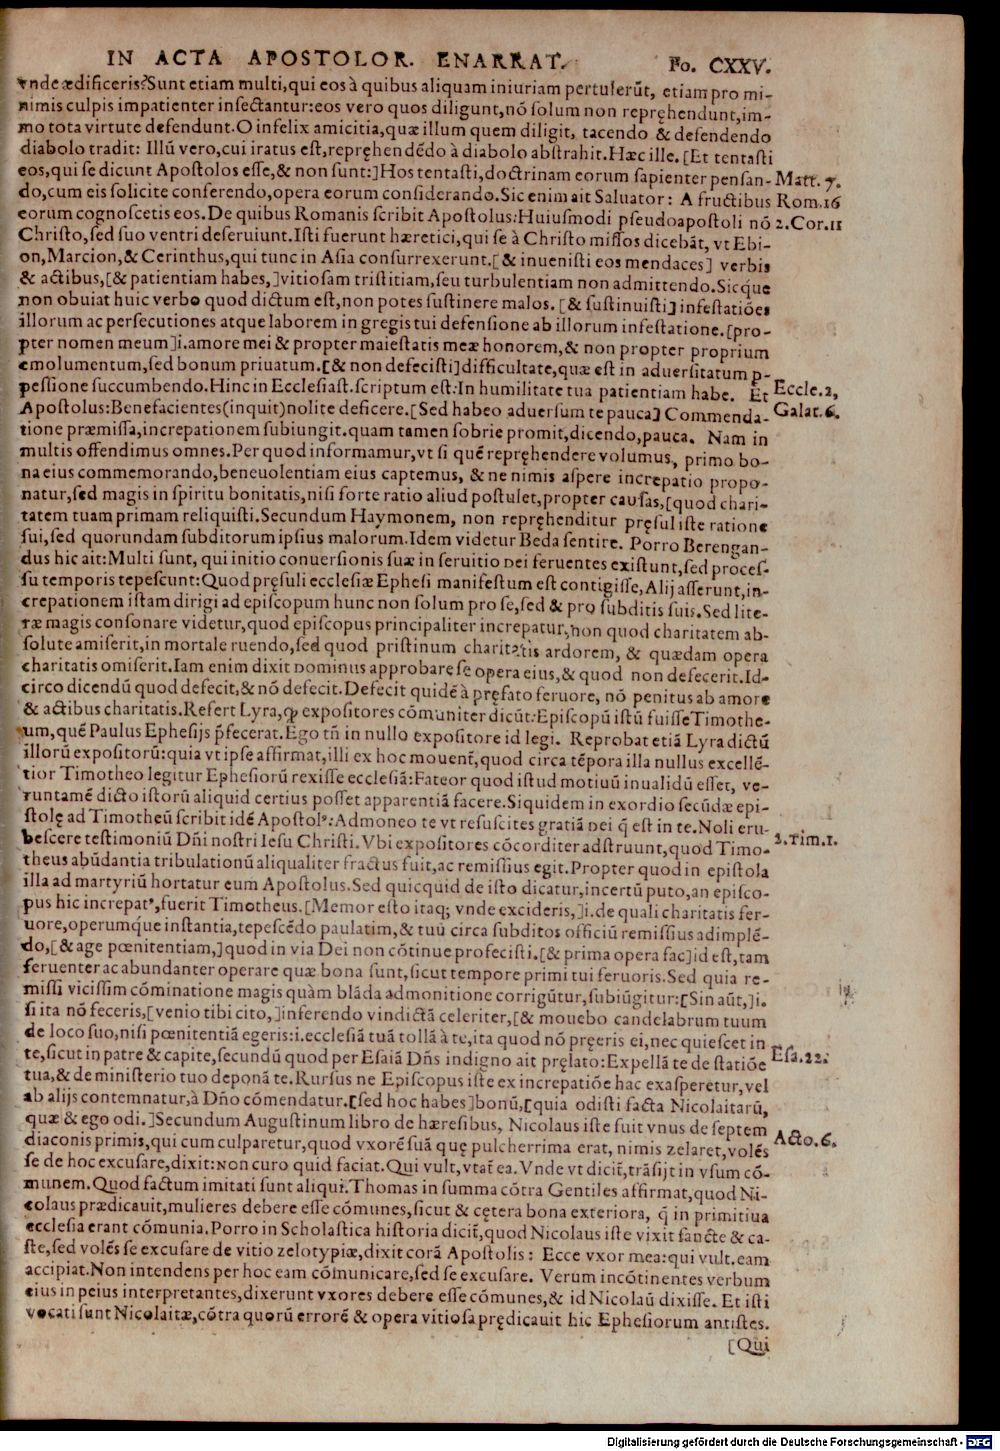 IN ACTA APOSTOLOR. ENARRAT. Fo. CXXV.
vnde ædificeris? Sunt etiam multi, qui eos à quibus aliquam iniuriam pertulerūt, etiam pro mi-
nimis culpis impatienter insectantur: eos vero quos diligunt, nō solum non repręhendunt, im-
mo tota virtute defendunt. O infelix amicitia, quæ illum quem diligit, tacendo & defendendo
diabolo tradit: Illū vero, cui iratus est, repręhendēdo à diabolo abstrahit. Hæc ille. [Et tentasti
eos, qui se dicunt Apostolos esse, & non sunt:] Hos tentasti, doctrinam eorum sapienter pensan- Matt. 7.
do, cum eis solicite conferendo, opera eorum considerando. Sic enim ait Saluator: A fructibus Rom. 16
eorum cognoscetis eos. De quibus Romanis scribit Apostolus: Huiusmodi pseudoapostoli nō 2. Cor. 11
Christo, sed suo ventri deseruiunt. Isti fuerunt hæretici, qui se à Christo missos dicebāt, vt Ebi-
on, Marcion, & Cerinthus, qui tunc in Asia consurrexerunt. [& inuenisti eos mendaces] verbis
& actibus, [& patientiam habes,] vitiosam tristitiam, seu turbulentiam non admittendo. Sicque
non obuiat huic verbo quod dictum est, non potes sustinere malos. [& sustinuisti] infestatiōes
illorum ac persecutiones atque laborem in gregis tui defensione ab illorum infestatione. [pro-
pter nomen meum] i. amore mei & propter maiestatis meæ honorem, & non propter proprium
emolumentum, sed bonum priuatum. [& non defecisti] difficultate, quæ est in aduersitatum p-
pessione succumbendo. Hinc in Ecclesiast. scriptum est: In humilitate tua patientiam habe. Et Eccle. 2,
Apostolus: Benefacientes (inquit) nolite deficere. [Sed habeo aduersum te pauca] Commenda- Galat. 6.
tione præmissa, increpationem subiungit. quam tamen sobrie promit, dicendo, pauca. Nam in
multis offendimus omnes. Per quod informamur, vt si quē repręhendere volumus, primo bo-
na eius commemorando, beneuolentiam eius captemus, & ne nimis aspere increpatio propo-
natur, sed magis in spiritu bonitatis, nisi forte ratio aliud postulet, propter causas, [quod chari-
tatem tuam primam reliquisti. Secundum Haymonem, non repręhenditur pręsul iste ratione
sui, sed quorundam subditorum ipsius malorum. Idem videtur Beda sentire. Porro Berengan-
dus hic ait: Multi sunt, qui initio conuersionis suæ in seruitio Dei feruentes existunt, sed proces-
su temporis tepescunt: Quod pręsuli ecclesiæ Ephesi manifestum est contigisse, Alij asserunt, in-
crepationem istam dirigi ad episcopum hunc non solum pro se, sed & pro subditis suis. Sed lite-
ræ magis consonare videtur, quod episcopus principaliter increpatur, non quod charitatem ab-
solute amiserit, in mortale ruendo, sed quod pristinum charitatis ardorem, & quædam opera
charitatis omiserit. Iam enim dixit Dominus approbare se opera eius, & quod non defecerit. Id-
circo dicendū quod defecit, & nō defecit. Defecit quidē à pręfato feruore, nō penitus ab amore
& actibus charitatis. Refert Lyra, ꝙ expositores cōmuniter dicūt: Episcopū istū fuisse Timothe-
um, quē Paulus Ephesijs p̄fecerat. Ego tn̄ in nullo expositore id legi. Reprobat etiā Lyra dictū
illorū expositorū: quia vt ipse affirmat, illi ex hoc mouent̄, quod circa tēpora illa nullus excellē-
tior Timotheo legitur Ephesiorū rexisse ecclesiā: Fateor quod istud motiuū inualidū esset, ve-
runtamē dicto istorū aliquid certius posset apparentiā facere. Siquidem in exordio secūdæ epi-
stolę ad Timotheū scribit idē Apostolꝰ: Admoneo te vt resuscites gratiā Dei q̄ est in te. Noli eru-
bescere testimoniū Dn̄i nostri Iesu Christi. Vbi expositores cōcorditer adstruunt, quod Timo- 2. Tim. 1.
theus abūdantia tribulationū aliqualiter fractus fuit, ac remissius egit. Propter quod in epistola
illa ad martyriū hortatur eum Apostolus. Sed quicquid de isto dicatur, incertū puto, an episco-
pus hic increpatꝰ, fuerit Timotheus. [Memor esto itaq; vnde excideris,] i. de quali charitatis fer-
uore, operumque instantia, tepescēdo paulatim, & tuū circa subditos officiū remissius adimplē-
do, [& age pœnitentiam,] quod in via Dei non cōtinue profecisti. [& prima opera fac] id est, tam
feruenter ac abundanter operare quæ bona sunt, sicut tempore primi tui feruoris. Sed quia re-
missi vicissim cōminatione magis quàm blāda admonitione corrigūtur, subiūgitur: [Sin aūt,] i.
si ita nō feceris, [venio tibi cito,] inferendo vindictā celeriter, [& mouebo candelabrum tuum
de loco suo, nisi pœnitentiā egeris: i. ecclesiā tuā tollā à te, ita quod nō pręeris ei, nec quiescet in
te, sicut in patre & capite, secundū quod per Esaiā Dn̄s indigno ait pręlato: Expellā te de statiōe Esa. 22.
tua, & de ministerio tuo deponā te. Rursus ne Episcopus iste ex increpatiōe hac exasperetur, vel
ab alijs contemnatur, à Dn̄o cōmendatur. [sed hoc habes] bonū, [quia odisti facta Nicolaitarū,
quæ & ego odi.] Secundum Augustinum libro de hæresibus, Nicolaus iste fuit vnus de septem
diaconis primis, qui cum culparetur, quod vxorē suā quę pulcherrima erat, nimis zelaret, volēs Acto. 6.
se de hoc excusare, dixit: Non curo quid faciat. Qui vult, vtat̄ ea. Vnde vt dicit̄, trāsijt in vsum cō-
munem. Quod factum imitati sunt aliqui. Thomas in summa cōtra Gentiles affirmat, quod Ni-
colaus prædicauit, mulieres debere esse cōmunes, sicut & cętera bona exteriora, q̄ in primitiua
ecclesia erant cōmunia. Porro in Scholastica historia dicit̄, quod Nicolaus iste vixit sancte & ca-
ste, sed volēs se excusare de vitio zelotypiæ, dixit corā Apostolis: Ecce vxor mea: qui vult. eam
accipiat. Non intendens per hoc eam cōmunicare, sed se excusare. Verum incōtinentes verbum
eius in peius interpretantes, dixerunt vxores debere esse cōmunes, & id Nicolaū dixisse. Et isti
vocati sunt Nicolaitæ, cōtra quorū errorē & opera vitiosa prędicauit hic Ephesiorum antistes.
[Qui
Digitalisierung gefördert durch die Deutsche Forschungsgemeinschaft - DFG